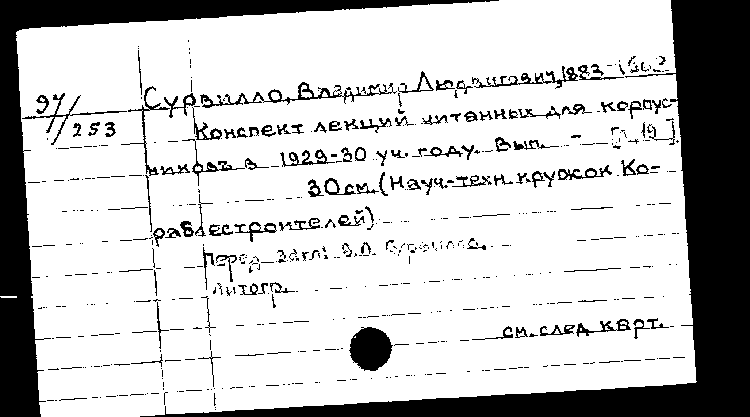 97/253
Сурвилло, Владимир Людвигович, 1883-
Конспект лекций читанных для корпус-
никовъ в 1929-30 уч. году. Вып. - [Л., 19 ].
30 см. (Науч.-техн. кружок Ко-
раблестроителей)
Перед загл: В.Л. Сурвилло.
Литогр.
см. след карт.